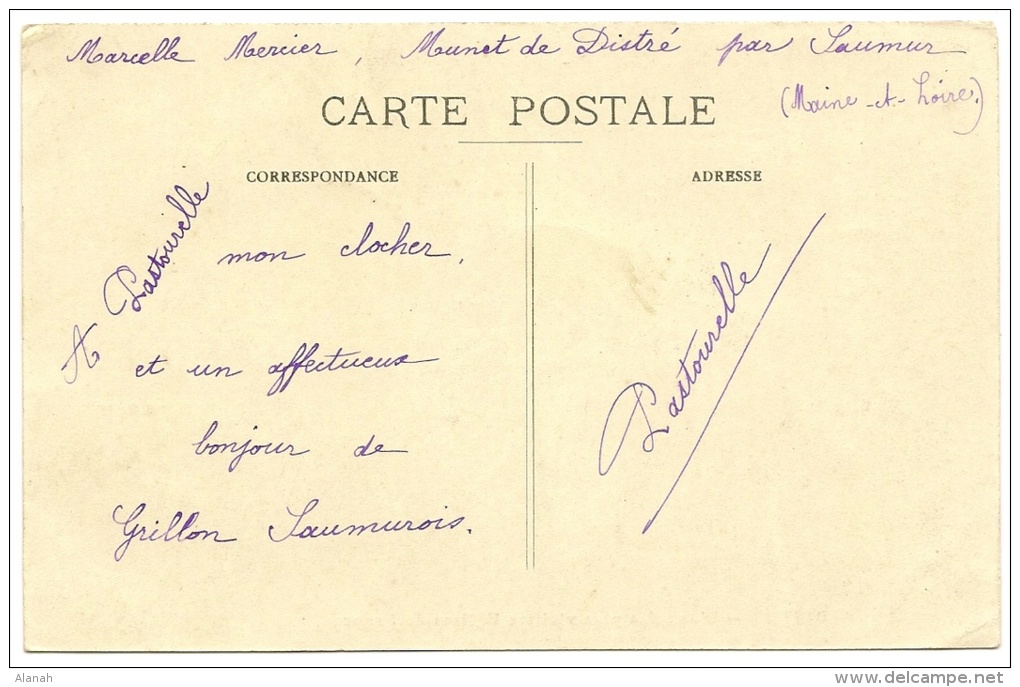 Marcelle Mercier, Munet de Distré par Saumur
(Maine-et-Loire.)
CARTE POSTALE
CORRESPONDANCE
ADRESSE
A Pastourelle
mon clocher,
et un affectueux
bonjour de
Grillon Saumurois.
Pastourelle
Alanah
www.delcampe.net